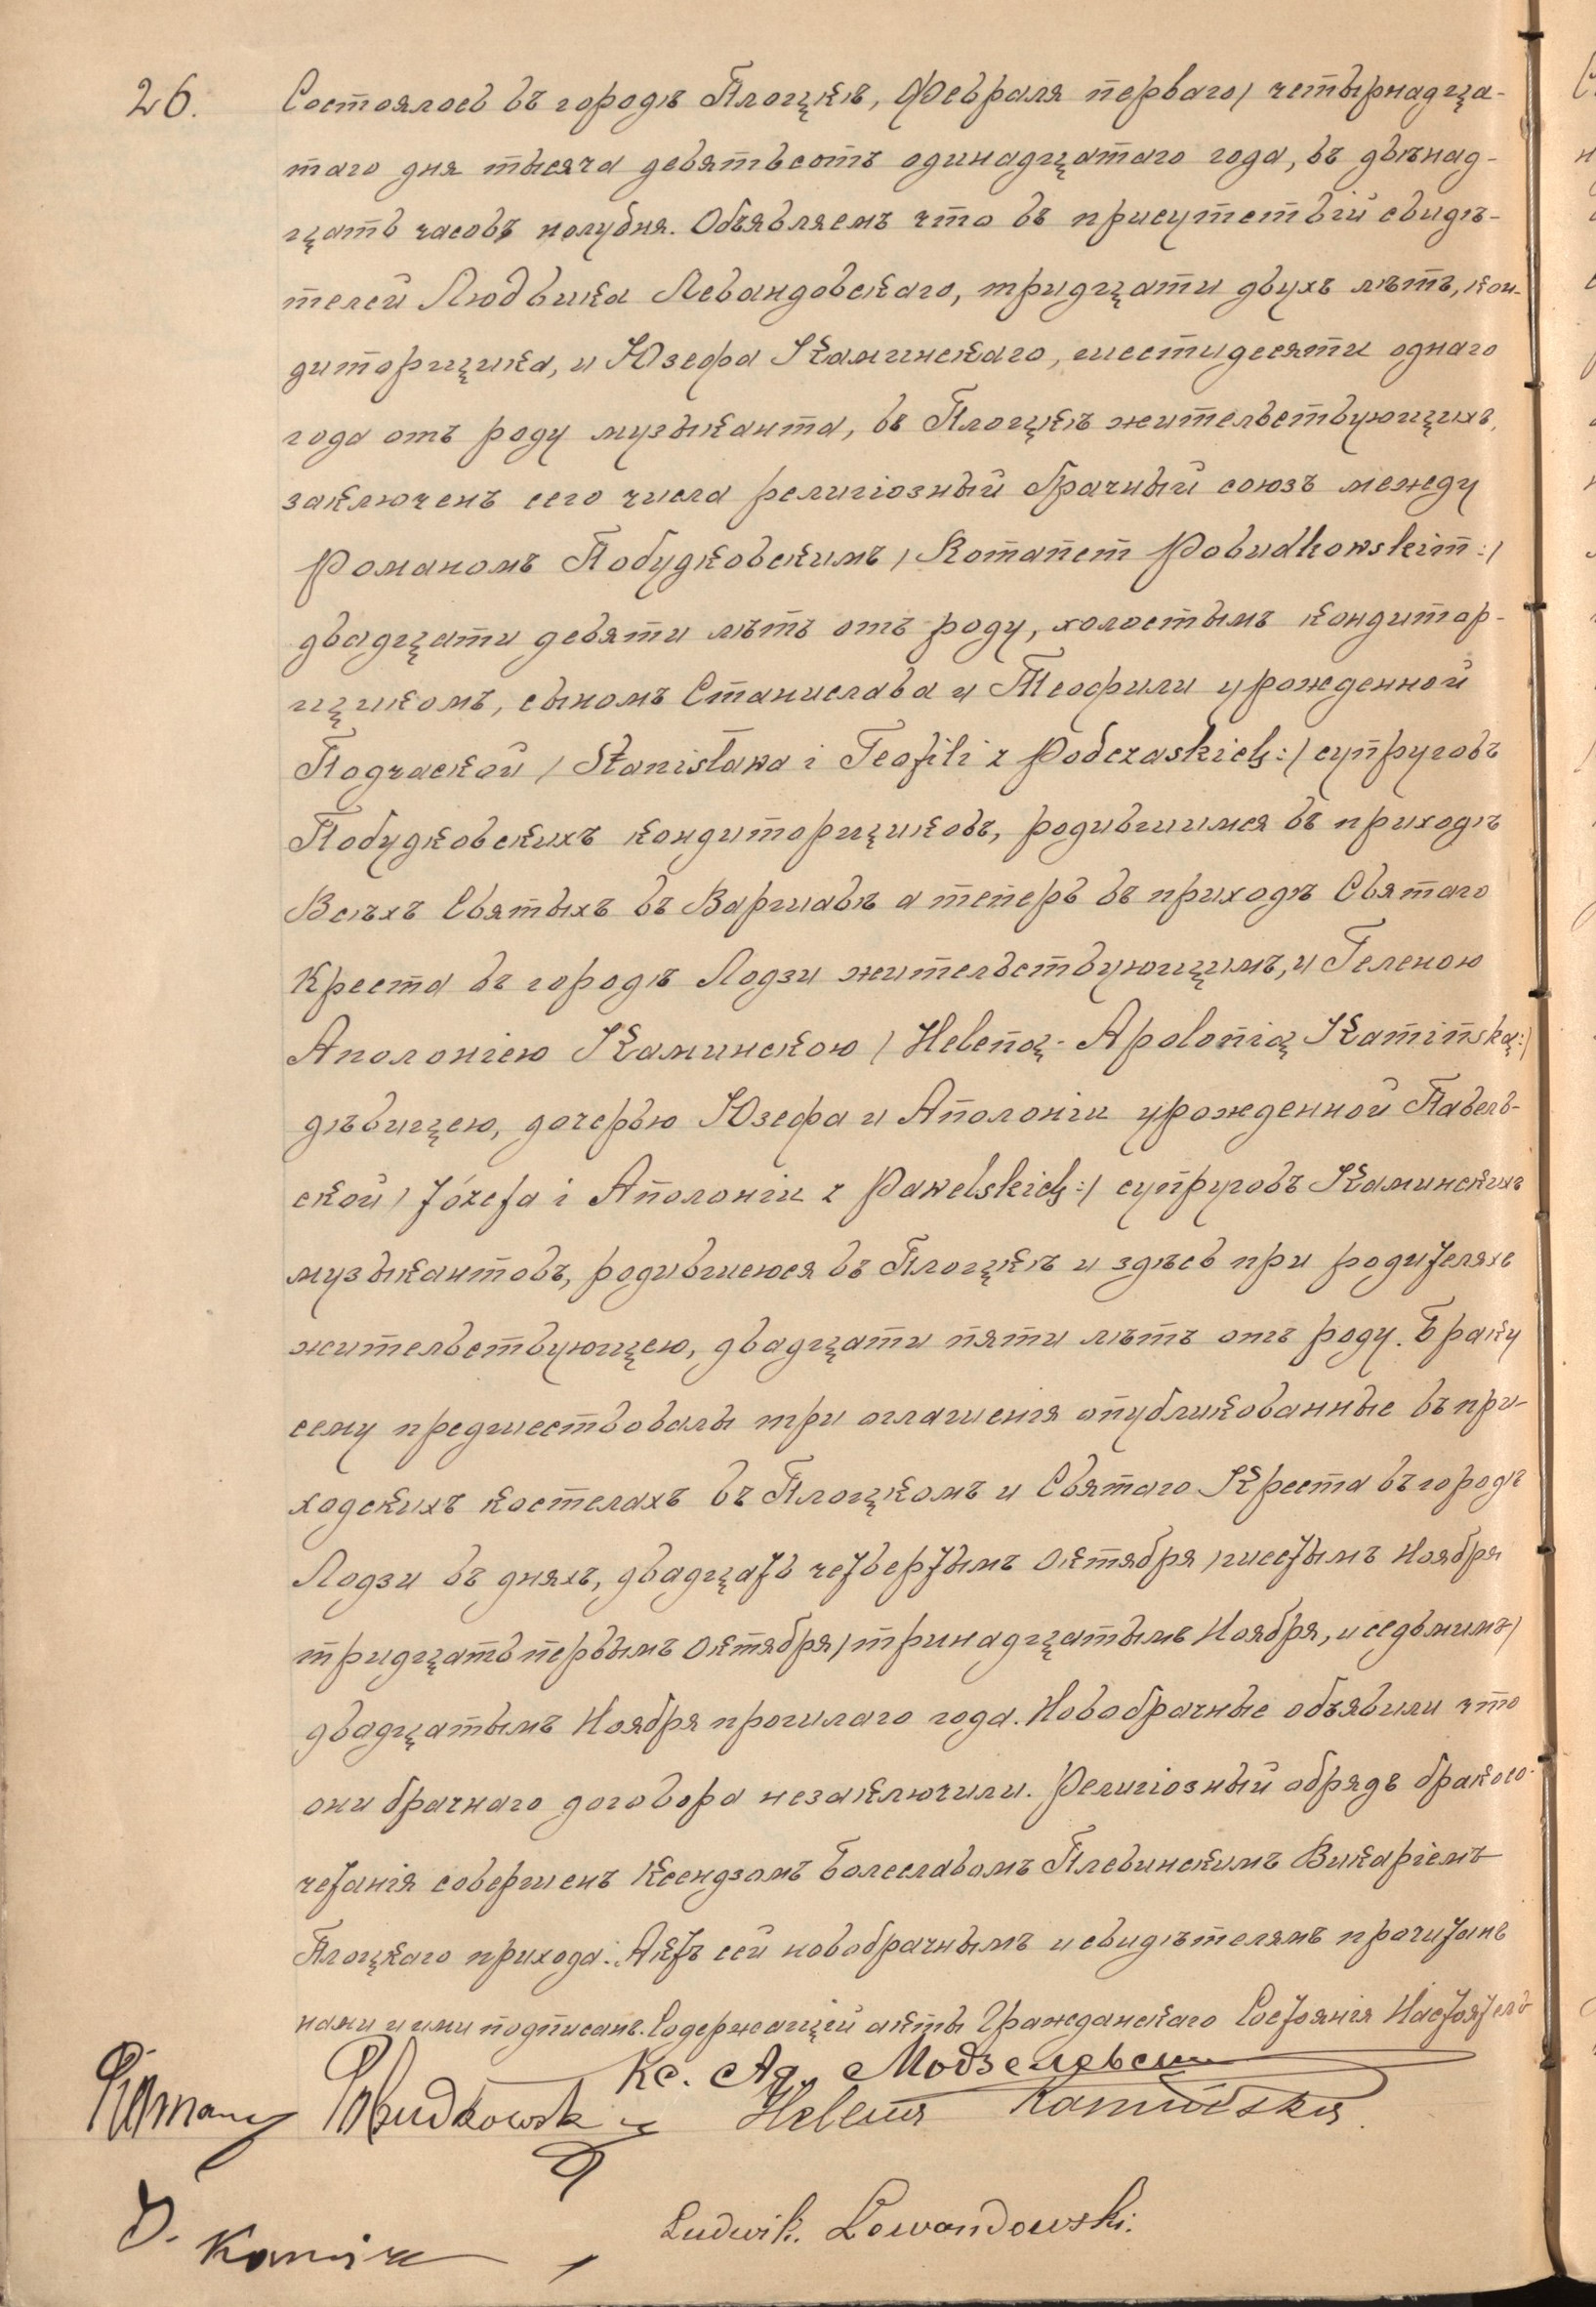 26. Состоялось въ городѣ Плоцкѣ, Февраля перваго / четырнадца-
таго дня тысяча девятьсотъ одинадцатаго года, въ двѣнад-
цать часовъ полудня. Объявляемъ что въ присутствій свидѣ-
телей Людвика Левандовскаго, тридцати двухъ лѣтъ, кон-
диторщика, и Юзефа Каминскаго, шестидесяти одного
года отъ роду музыканта, въ Плоцкѣ жительствующихъ,
заключенъ сего числа религіозный брачный союзъ между
Романомъ Побудковскимъ / Romanem Pobudkowskim :/
двадцати девяти лѣтъ отъ роду, холостымъ кондитор-
щикомъ, сыномъ Станислава и Теофили урожденной
Подчаской / Stanisława i Teofili z Podczaskich :/ супруговъ
Побудковскихъ кондиторщиковъ, родившимся въ приходѣ
Всѣхъ Святыхъ въ Варшавѣ а теперь въ приходѣ Святаго
Креста въ городѣ Лодзи жительствующимъ, и Геленою
Аполоніею Каминскою / Heleną - Apolonią Kamińską :/
дѣвицею, дочерью Юзефа и Аполоніи урожденной Павель-
ской / Józefa i Аполоніи z Pawelskich :/ супруговъ Каминскихъ
музыкантовъ, родившеюся въ Плоцкѣ и здѣсь при родителяхъ
жительствующею, двадцати пяти лѣтъ отъ роду. Браку
сему предшествовалы три оглашенія опубликованные въ при-
ходскихъ костелахъ въ Плоцкомъ и Святаго Креста въ городѣ
Лодзи въ дняхъ, двадцать четвертымъ Октября / шестымъ Ноября
тридцать первымъ Октября / тринадцатымъ Ноября, и седьмимъ /
двадцатымъ Ноября прошлаго года. Новобрачные объявили что
они брачнаго договора незаключили. Религіозный обрядъ бракосо-
четанія совершенъ Ксендзомъ Болеславомъ Плевинскимъ Викаріемъ
Плоцкаго прихода. Актъ сей новобрачнымъ и свидѣтелямъ прочитанъ
нами и ими подписанъ. Содержащій акты Гражданскаго Состоянія Настоятель
Кс. Ад. Модзелевски
Roman Pobudkowski Helena Kamińska
J. Kamiń
Ludwik. Lewandowski.